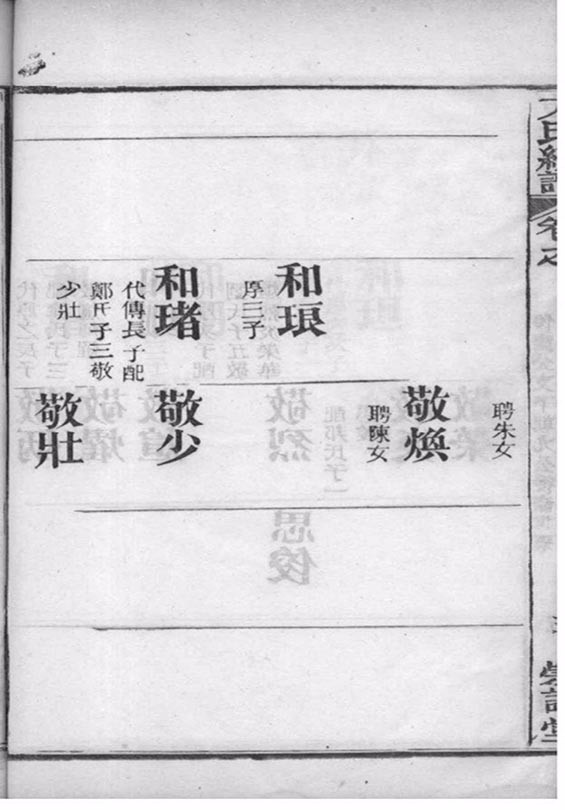 氏
卷之
和琅
和琽
代傳長子配
鄭氏子三敬
少壯
聘朱女
敬煥
聘陳女
敬少
敬壯